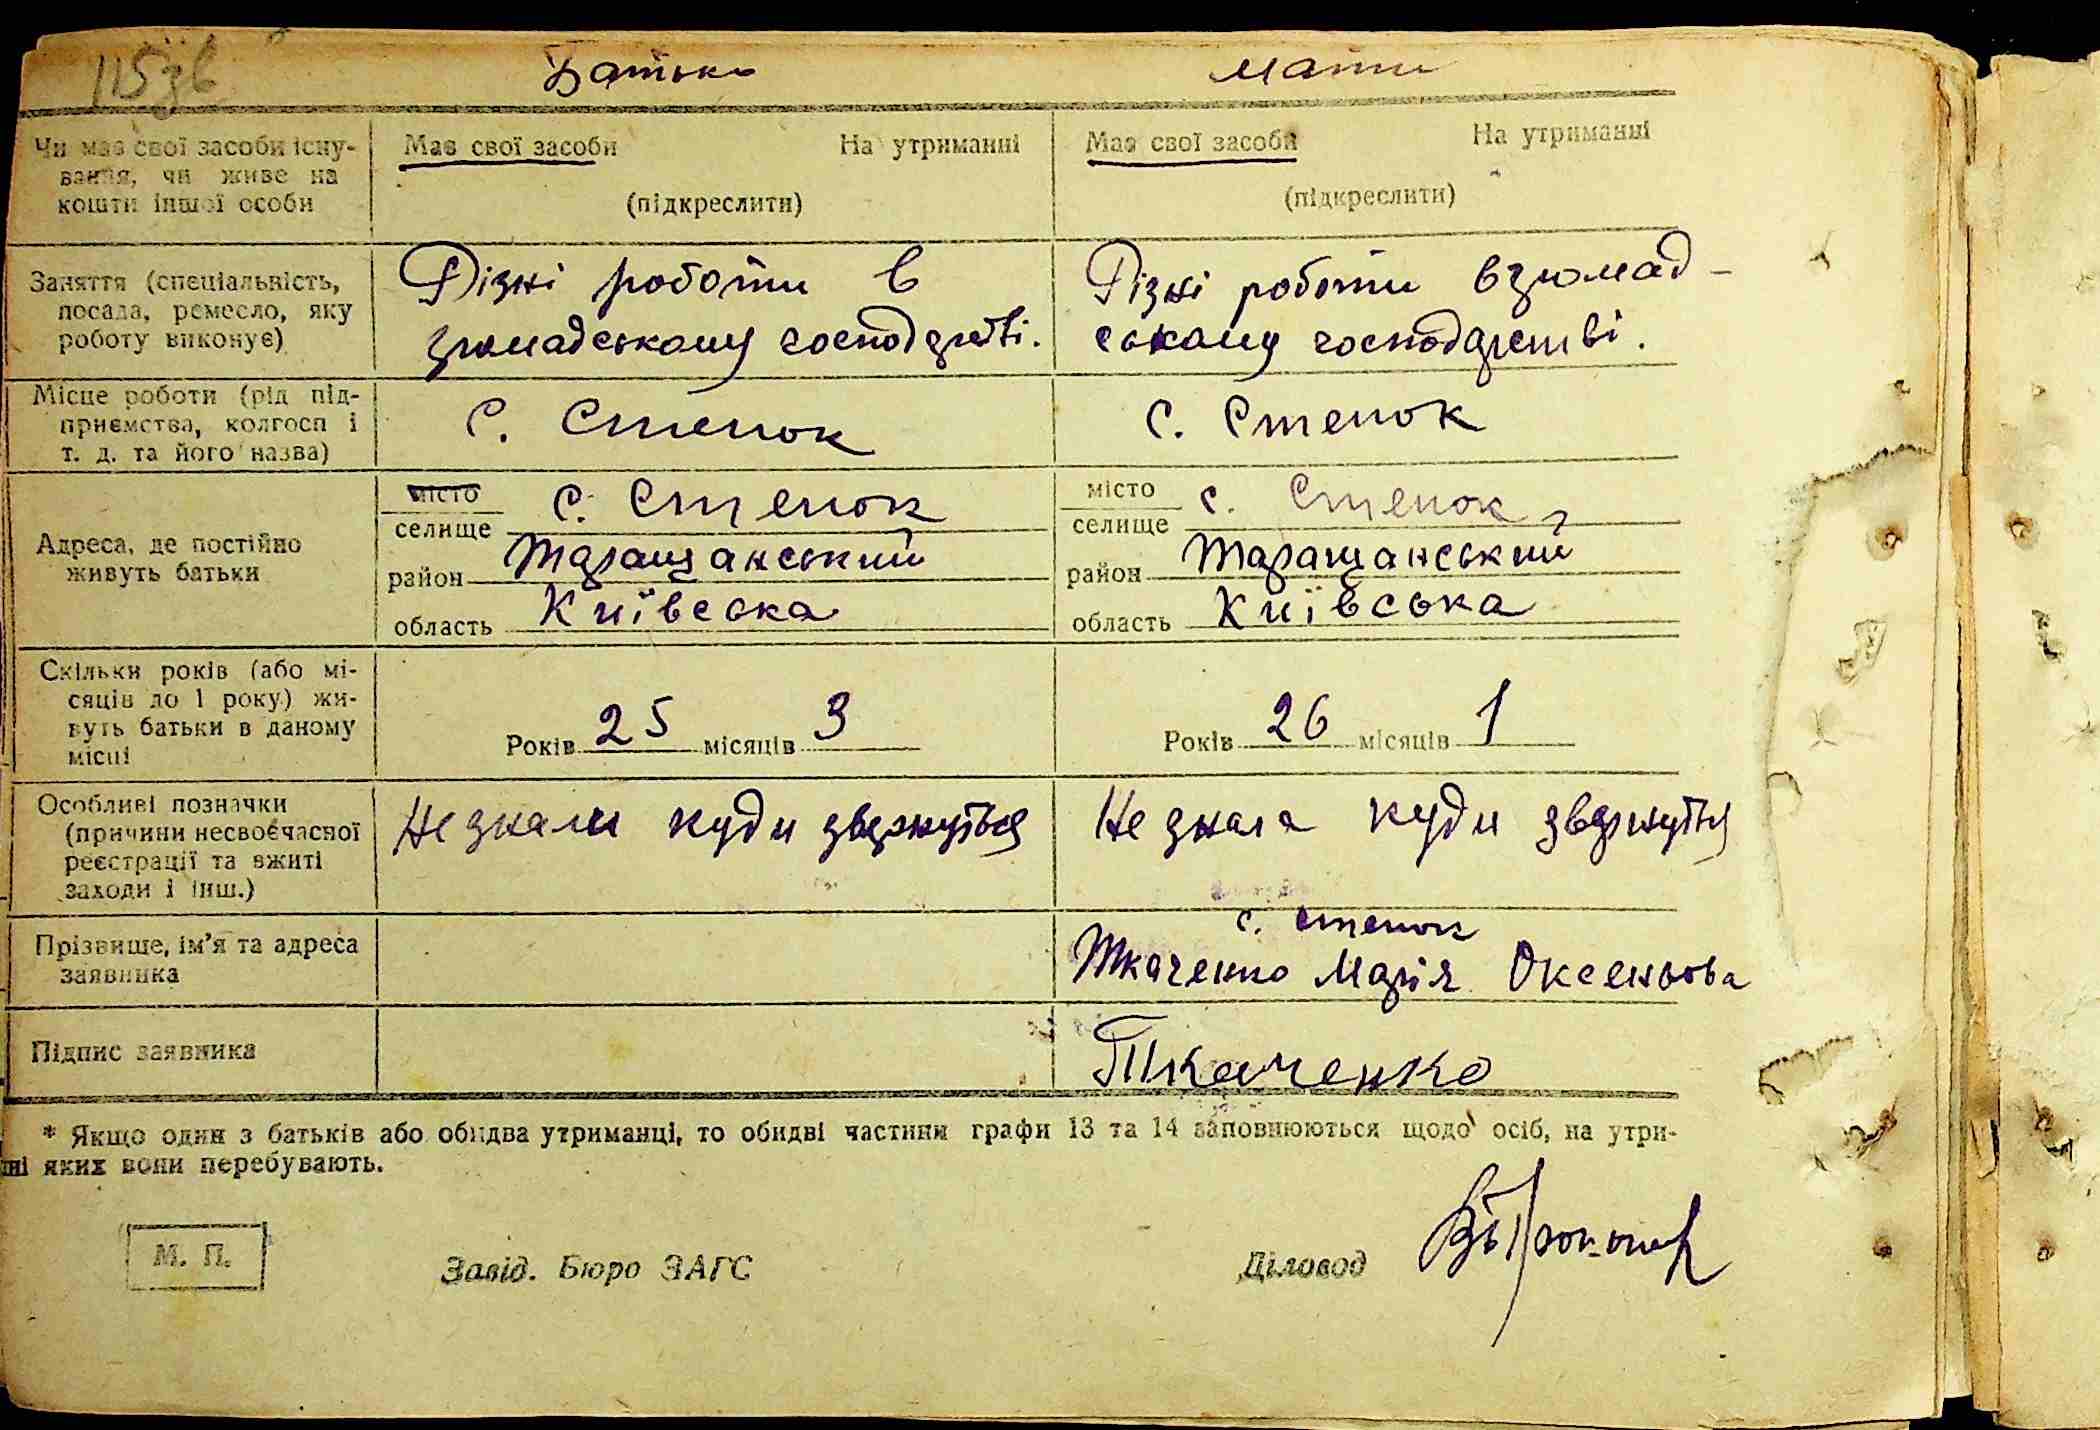 115зв
Батько Мати
Чи має свої засоби існу-
вання, чи живе на
кошти іншої особи
Має свої засоби На утриманні
(підкреслити)
Має свої засоби На утриманні
(підкреслити)
Заняття (спеціальність,
посада, ремесло, яку
роботу виконує)
Різні роботи в
громадському господрстві.
Різні роботи в громад-
ському господарстві.
Місце роботи (рід під-
приємства, колгосп і
т. д. та його назва)
С. Степок
С. Степок
Адреса, де постійно
живуть батьки
місто
селище с. Степок
район Таращанський
область Київська
місто
селище с. Степок,
район Таращанський
область Київська
Скільки років (або мі-
сяців до 1 року) жи-
вуть батьки в даному
місці
Років 25 місяців 3
Років 26 місяців 1
Особливі позначки
(причини несвоєчасної
реєстрації та вжиті
заходи і інш.)
Не знали куди звернуться
Не знала куди звернуться
Прізвище, ім'я та адреса
заявника
с. Степок
Ткаченко Марія Оксеньова
Підпис заявника
Ткаченко
* Якщо один з батьків або обидва утриманці, то обидві частини графи 13 та 14 заповнюються щодо осіб, на утри-
ні яких вони перебувають.
М. П.
Завід. Бюро ЗАГС
Діловод